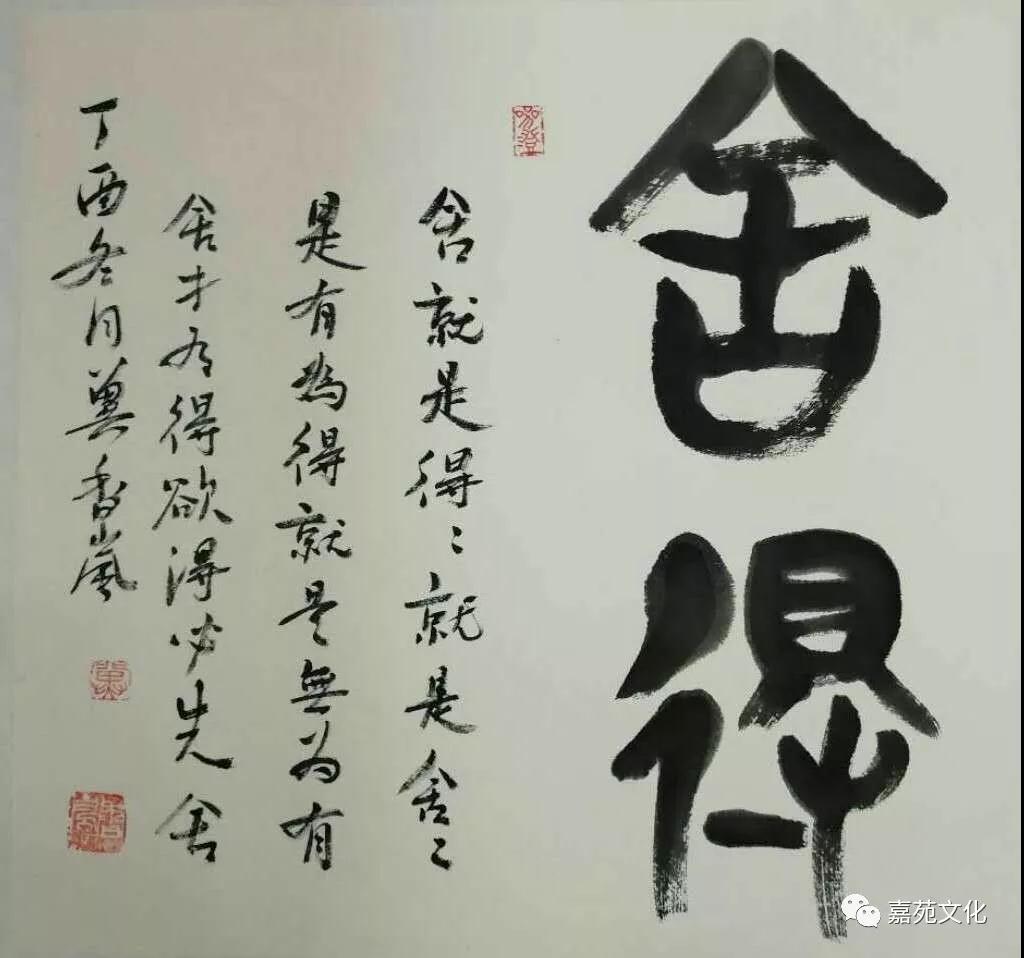 舍得
舍就是得〻就是舍〻
是有為得就是無為有
舍才有得欲得必先舍
丁酉冬月冀香嵐
嘉苑文化